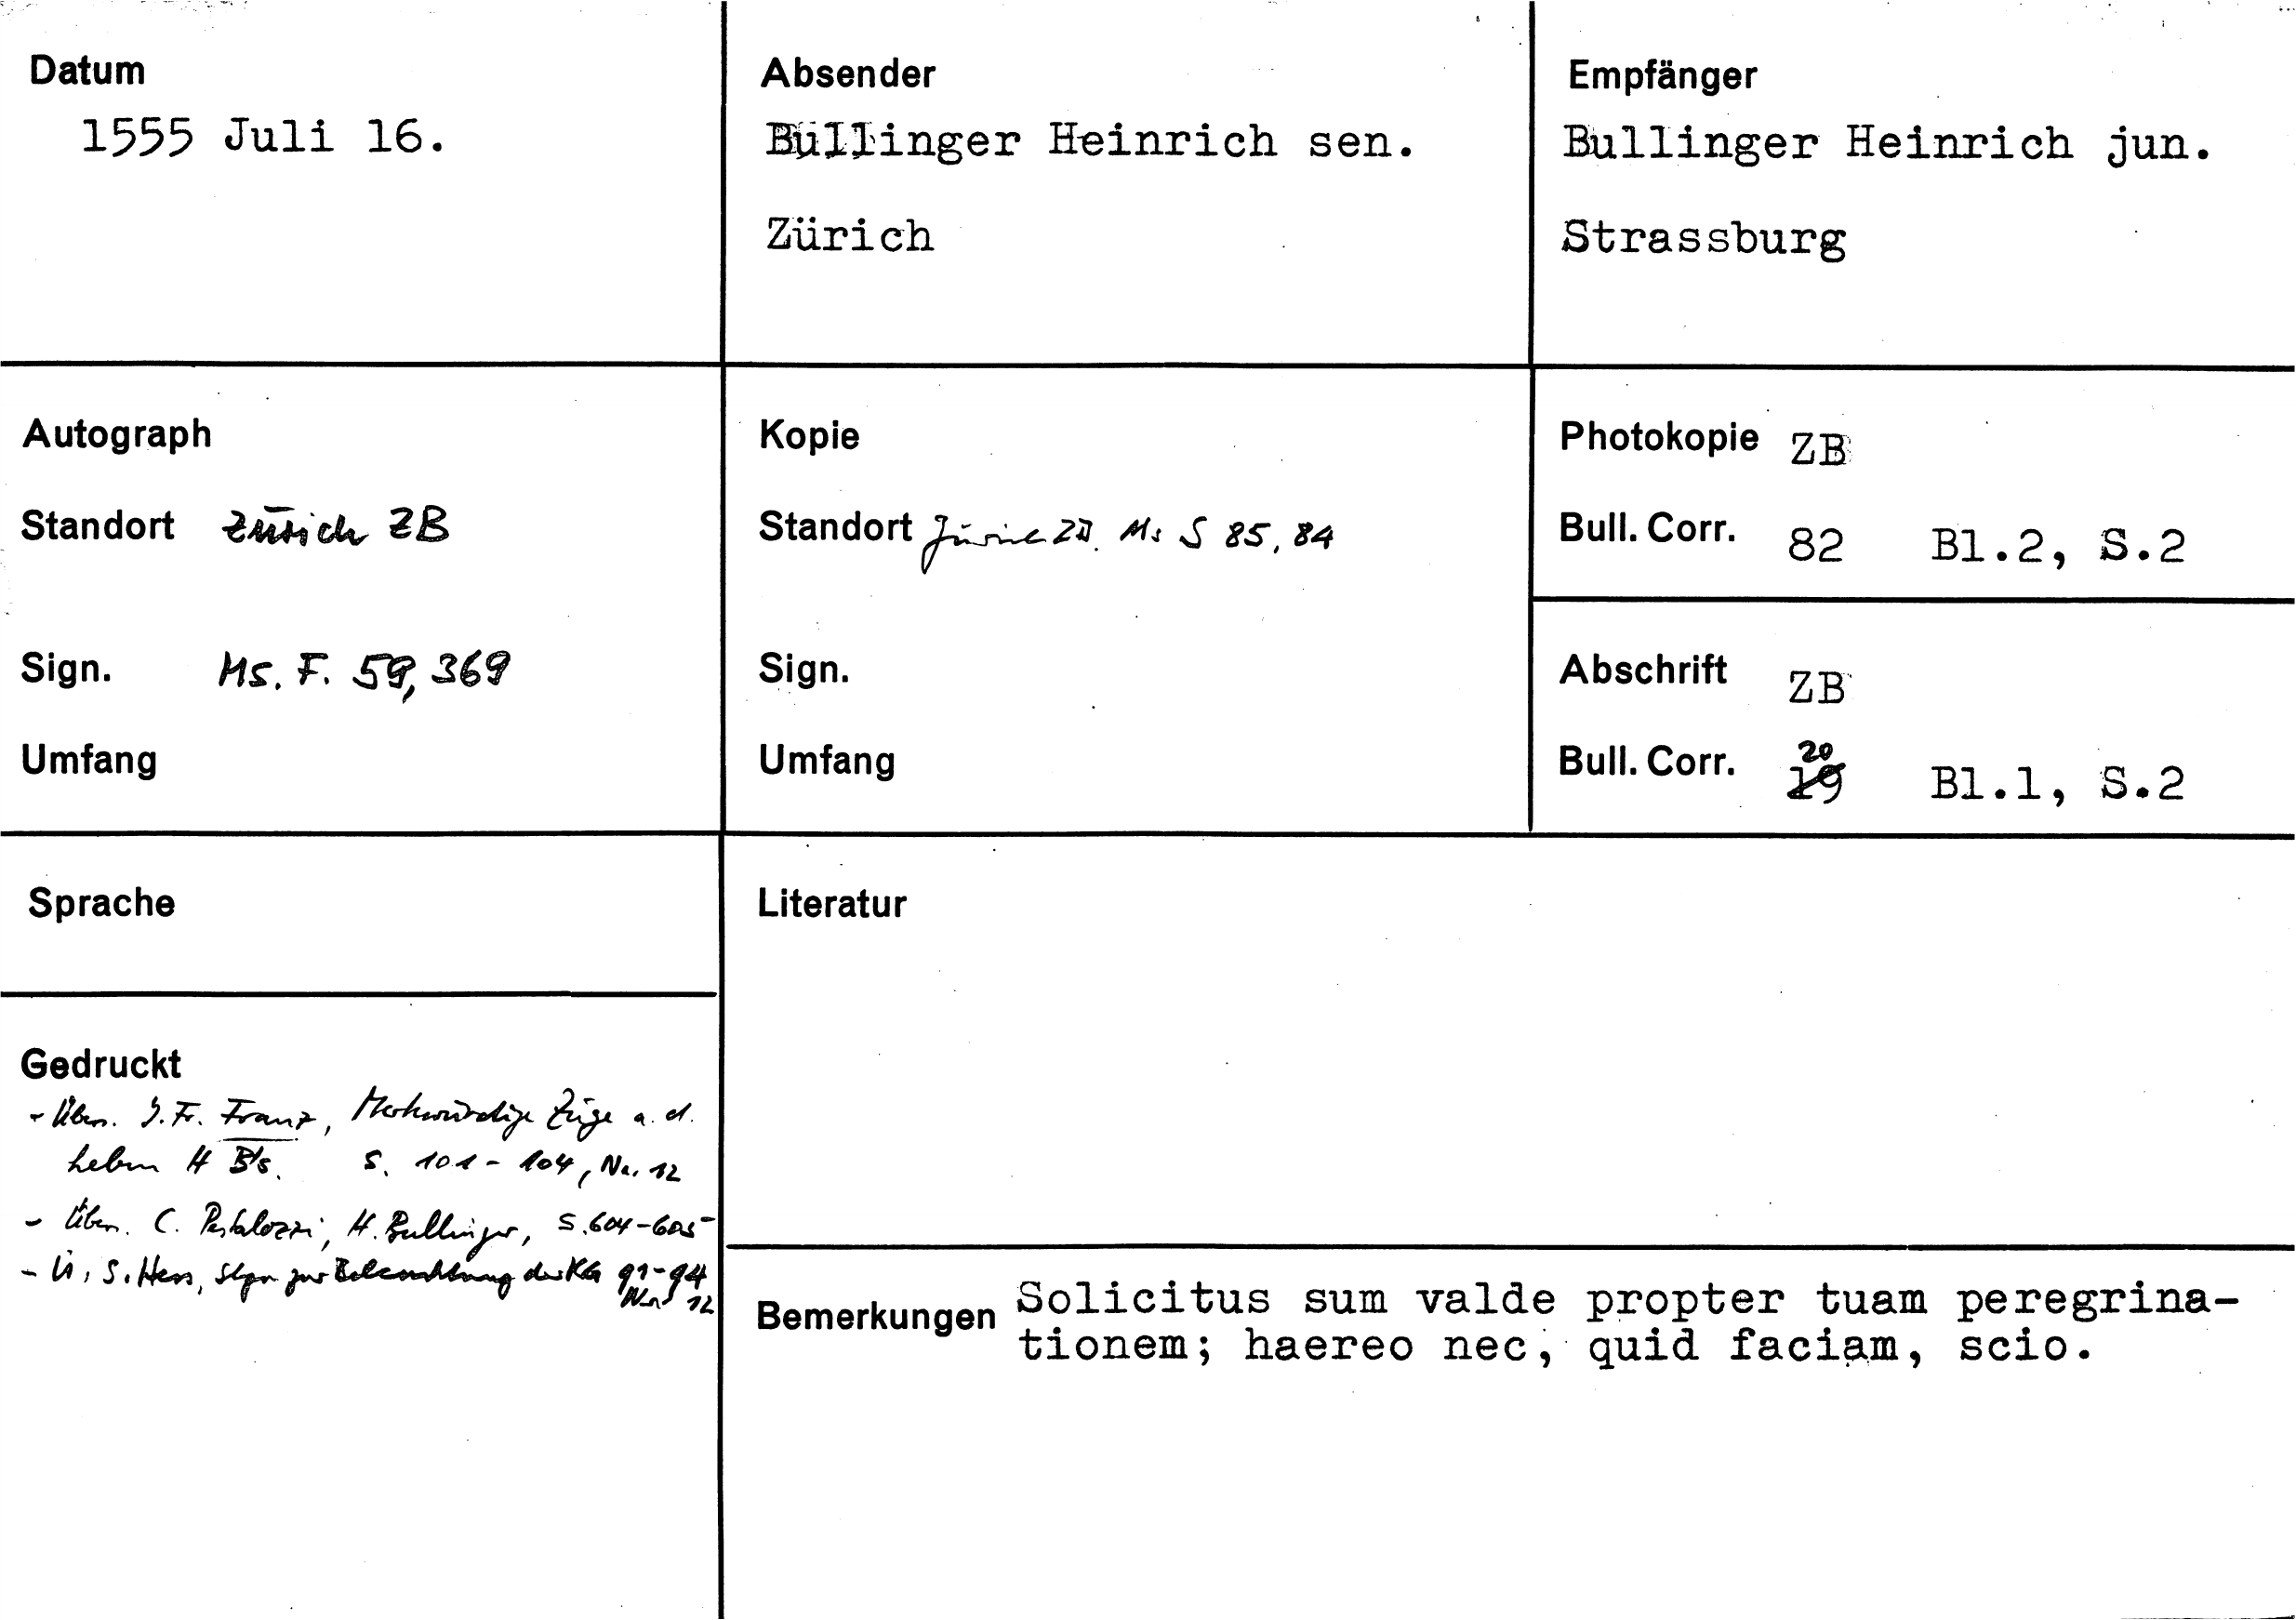 Datum
1555 Juli 16.
Absender
Bullinger Heinrich sen.
Zürich
Empfänger
Bullinger Heinrich jun.
Strassburg
Autograph
Standort Zürich ZB
Sign. Ms. F. 59, 369
Umfang
Kopie
Standort Zürich ZB. Ms S 85, 84
Sign.
Umfang
Photokopie ZB
Bull. Corr. 82 Bl.2, S.2
Abschrift ZB
Bull. Corr. 20 19 Bl.1, S.2
Sprache
Gedruckt
- Übers. J. Fr. Franz, Merkwürdige Züge a. d.
Leben H B's. S. 101 - 104, Nr. 12
- Übers. C. Pestalozzi, H. Bullinger, S. 604-605
- Ü, S. Hess, zur Beleuchtung der KG 91-94
Nr 12
Literatur
Bemerkungen Solicitus sum valde propter tuam peregrina-
tionem; haereo nec, quid faciam, scio.